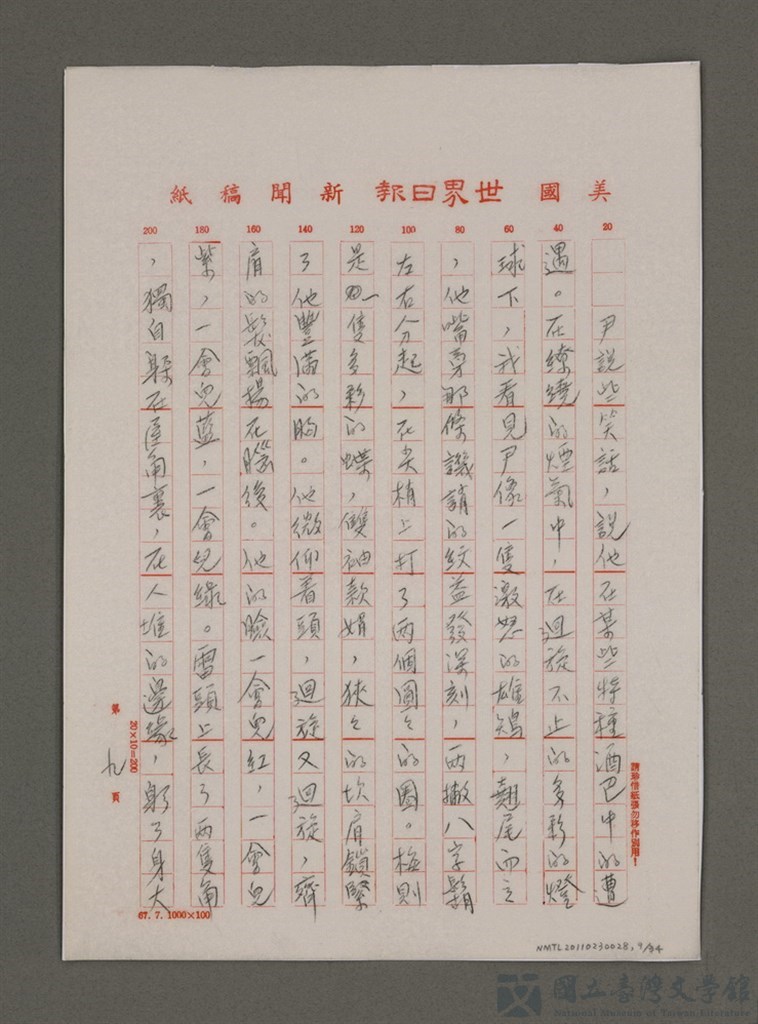 美國世界日報新聞稿紙
20 40 60 80 100 120 140 160 180 200
尹說些笑話，說他在某些特種酒巴中的遭
遇。在繚繞的煙氣中，在迴旋不止的多彩的燈
球下，我看見尹像一隻激怒的雄鷄，翹尾而立
，他嘴旁那條譏誚的紋益發深刻，兩撇八字鬍
左右分起，在尖梢上打了兩個圓圓的圈。梅則
是一隻多彩的蝶，雙袖款娟，狹狹的坎肩鎖緊
了他豐滿的胸。他微仰着頭，迴旋又迴旋，齊
肩的髮飄揚在腦後。他的臉一會兒紅，一會兒
紫，一會兒藍，一會兒綠。雷頭上長了兩隻角
，獨自躲在屋角裏，在人堆的邊緣，躬了身大
請珍惜紙張勿移作別用！
20×10=200
第九頁
67. 7. 1000×100
NMTL20110230028, 9/34
國立臺灣文學館
National Museum of Taiwan Literature